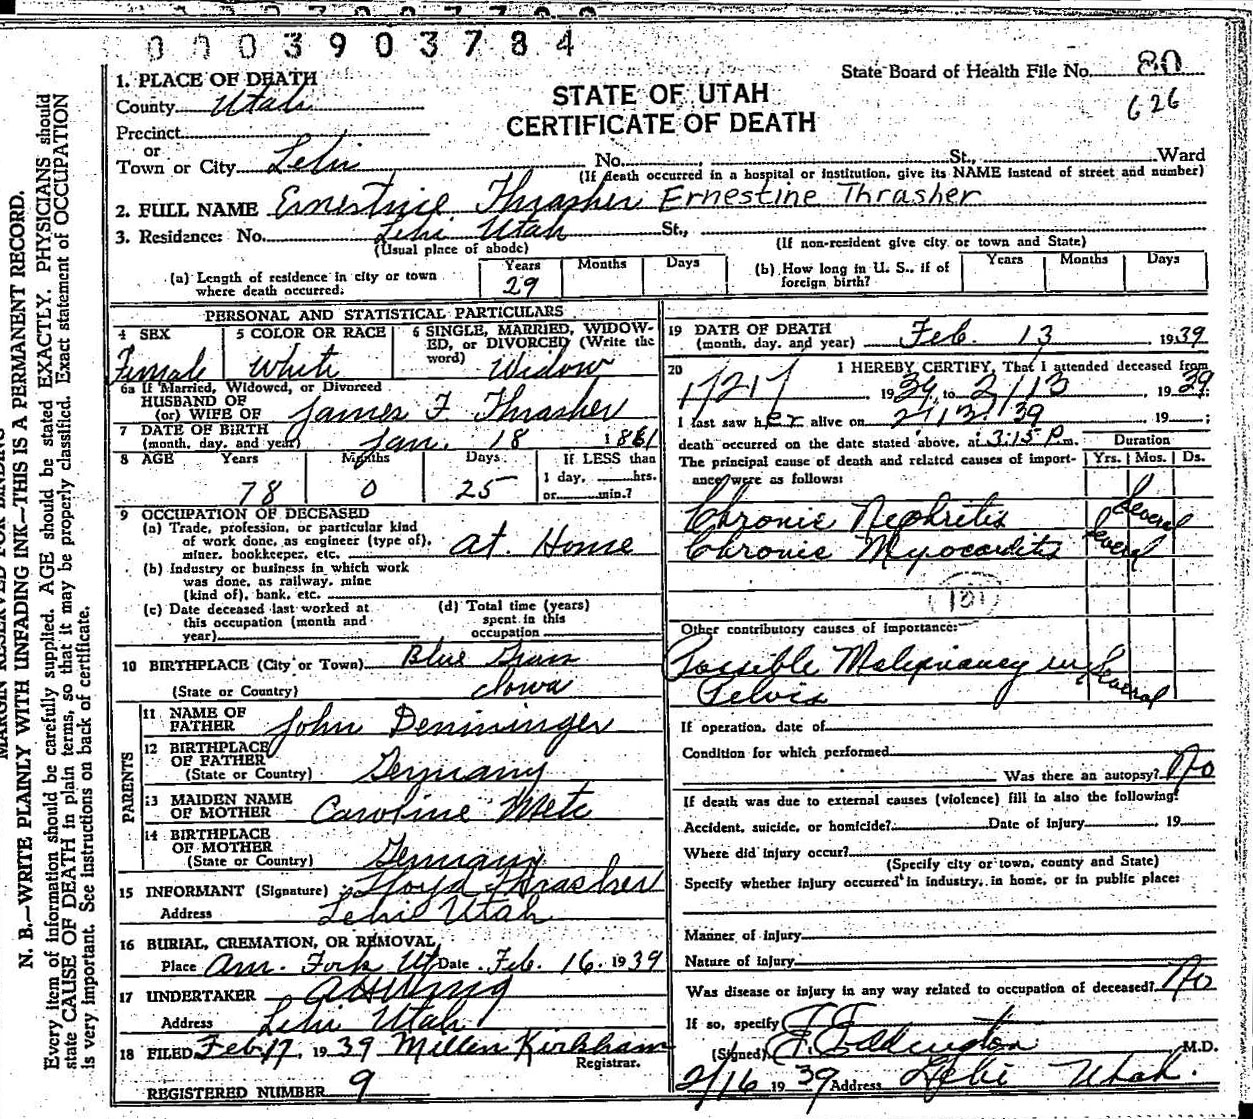 0003903784
1. PLACE OF DEATH
County Utah
Precinct
or
Town or City Lehi
State Board of Health File No. 80
626
STATE OF UTAH
CERTIFICATE OF DEATH
No. , St., Ward
(If death occurred in a hospital or institution, give its NAME instead of street and number)
2. FULL NAME Ernestine Thrasher Ernestine Thrasher
3. Residence: No. Lehi Utah St.,
(Usual place of abode) (If non-resident give city or town and State)
(a) Length of residence in city or town
where death occurred.
Years Months Days
29
(b) How long in U. S., if of
foreign birth?
Years Months Days
PERSONAL AND STATISTICAL PARTICULARS
4 SEX
Female
5 COLOR OR RACE
White
6 SINGLE, MARRIED, WIDOW-
ED, or DIVORCED (Write the
word) Widow
6a If Married, Widowed, or Divorced
HUSBAND OF
(or) WIFE OF James F Thrasher
7 DATE OF BIRTH
(month, day, and year) Jan. 18 1861
8 AGE Years Months Days
78 0 25
If LESS than
1 day, hrs.
or min.?
9 OCCUPATION OF DECEASED
(a) Trade, profession, or particular kind
of work done, as engineer (type of),
miner, bookkeeper, etc. at Home
(b) Industry or business in which work
was done, as railway, mine
(kind of), bank, etc.
(c) Date deceased last worked at
this occupation (month and
year)
(d) Total time (years)
spent in this
occupation
10 BIRTHPLACE (City or Town) Blue
(State or Country) Iowa
PARENTS
11 NAME OF
FATHER John Denininger
12 BIRTHPLACE
OF FATHER
(State or Country) Germany
13 MAIDEN NAME
OF MOTHER Caroline Metz
14 BIRTHPLACE
OF MOTHER
(State or Country) Germany
15 INFORMANT (Signature) Lloyd Thrasher
Address Lehi Utah
16 BURIAL, CREMATION, OR REMOVAL
Place Am. Fork Ut Date Feb. 16. 1939
17 UNDERTAKER
Address Lehi Utah
18 FILED Feb 17, 1939 Millen Kirkham
Registrar.
REGISTERED NUMBER 9
19 DATE OF DEATH
(month, day, and year) Feb. 13 1939
20 I HEREBY CERTIFY, That I attended deceased from
1939, to 2/13 1939:
I last saw her alive on 2/13/39 19 ;
death occurred on the date stated above, at 3:15 P.m.
The principal cause of death and related causes of import-
ance were as follows:
Duration
Yrs. Mos. Ds.
Chronic Nephritis Several
Chronic Myocarditis Several
131
Other contributory causes of importance:
Possible Malignancy in Several
Pelvis
If operation, date of
Condition for which performed
Was there an autopsy? No
If death was due to external causes (violence) fill in also the following:
Accident, suicide, or homicide? Date of injury 19
Where did injury occur?
(Specify city or town, county and State)
Specify whether injury occurred in industry, in home, or in public place:
Manner of injury
Nature of injury
Was disease or injury in any way related to occupation of deceased? No
If so, specify
(Signed) Eddington M.D.
2/16 1939 Address Lehi Utah.
MARGIN RESERVED FOR BINDING
N. B.—WRITE PLAINLY WITH UNFADING INK—THIS IS A PERMANENT RECORD.
Every item of information should be carefully supplied. AGE should be stated EXACTLY. PHYSICIANS should
state CAUSE OF DEATH in plain terms, so that it may be properly classified. Exact statement of OCCUPATION
is very important. See instructions on back of certificate.